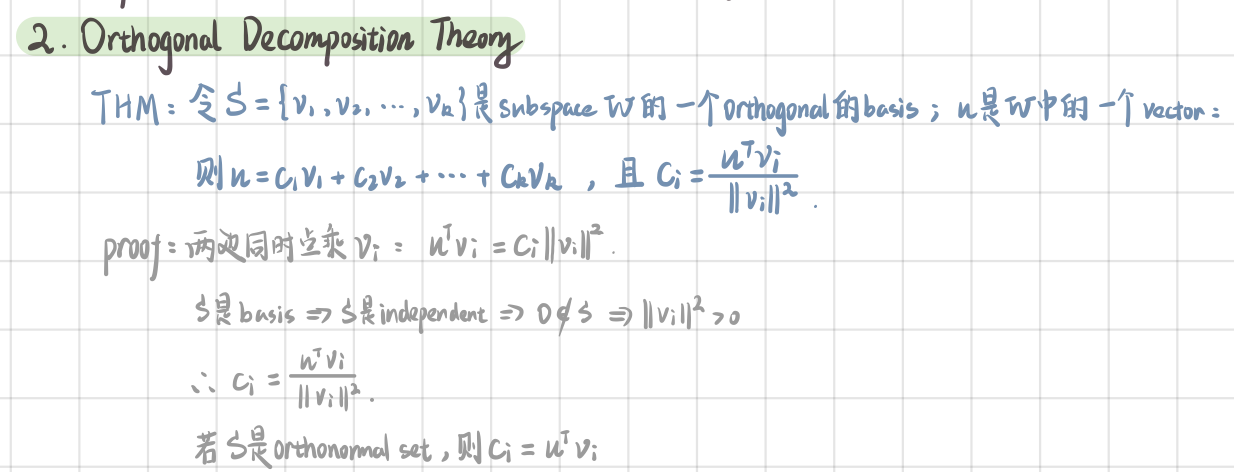 2. Orthogonal Decomposition Theory
THM: 令 S = {v₁, v₂, ⋯, vₖ}是 subspace W 的一个 orthogonal 的 basis ; u是W中的一个 vector :
则 u = c₁v₁ + c₂v₂ + ⋯ + cₖvₖ , 且 cᵢ = uᵀvᵢ / ‖vᵢ‖² .
proof: 两边同时点乘 vᵢ : uᵀvᵢ = cᵢ‖vᵢ‖² .
S是 basis ⇒ S是 independent ⇒ 0 ∉ S ⇒ ‖vᵢ‖² > 0
∴ cᵢ = uᵀvᵢ / ‖vᵢ‖² .
若 S是 orthonormal set , 则 cᵢ = uᵀvᵢ